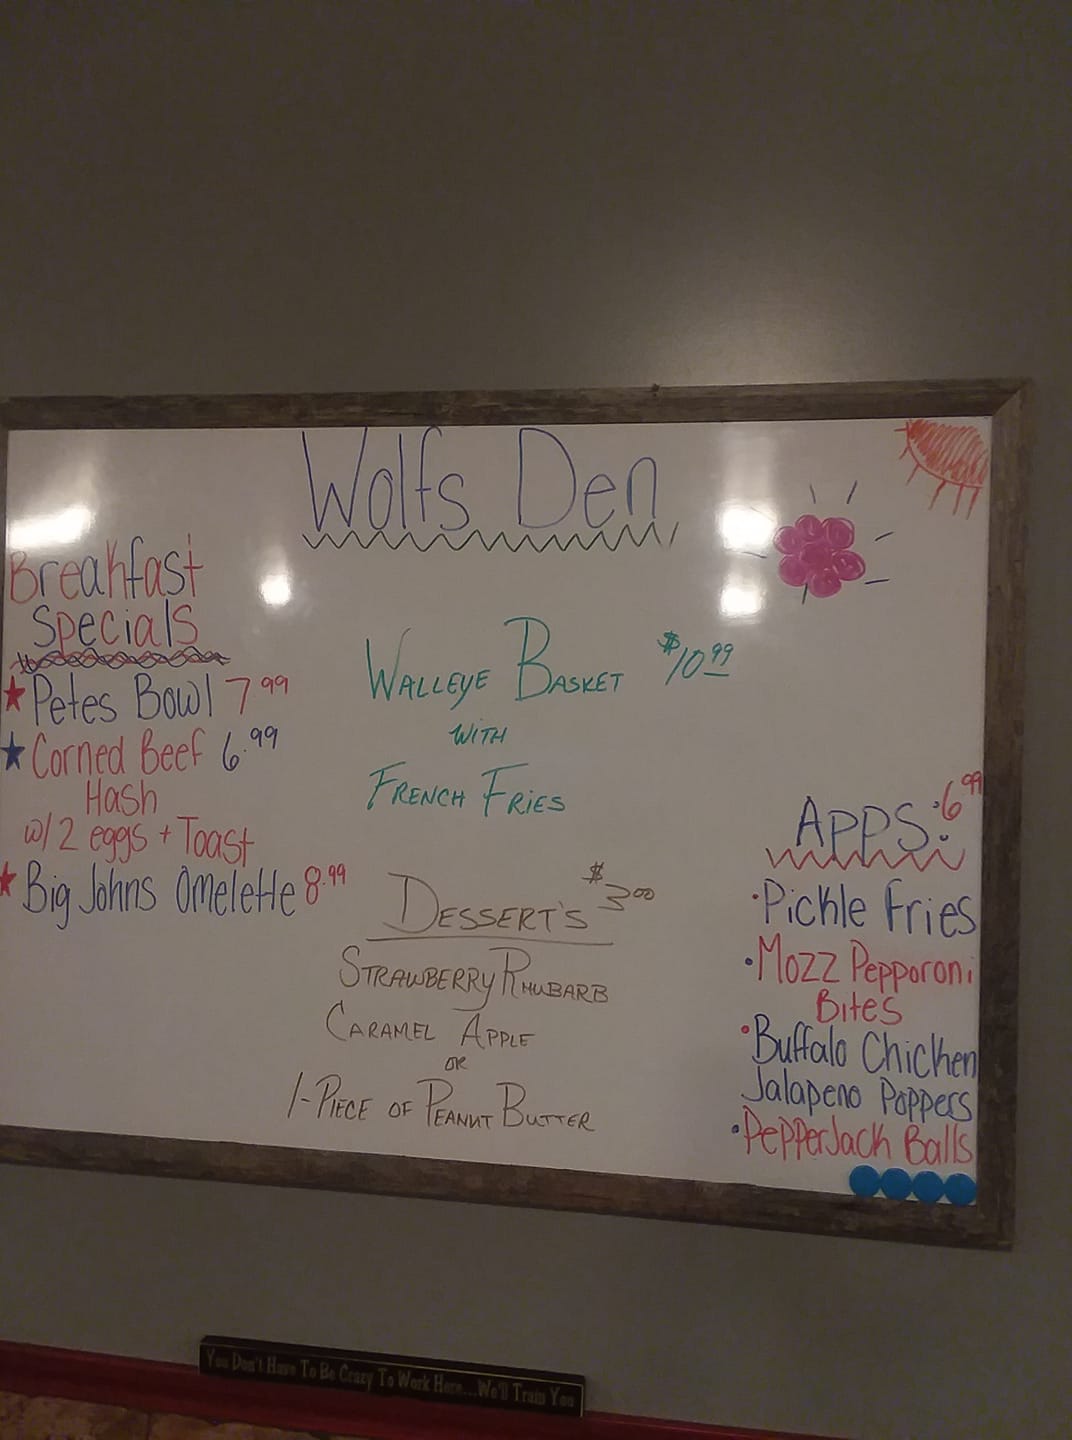 Wolfs Den
Breakfast
Specials
Petes Bowl 7.99
Corned Beef 6.99
Hash
w/ 2 eggs + Toast
Big Johns Omelette 8.99
WALLEYE BASKET $10.99
WITH
FRENCH FRIES
DESSERT'S $3.00
STRAWBERRY RHUBARB
CARAMEL APPLE
OR
1-PIECE OF PEANUT BUTTER
APPS: 6.99
·Pickle Fries
·Mozz Pepporoni
Bites
·Buffalo Chicken
Jalapeno Poppers
·PepperJack Balls
You Don't Have To Be Crazy To Work Here...We'll Train You